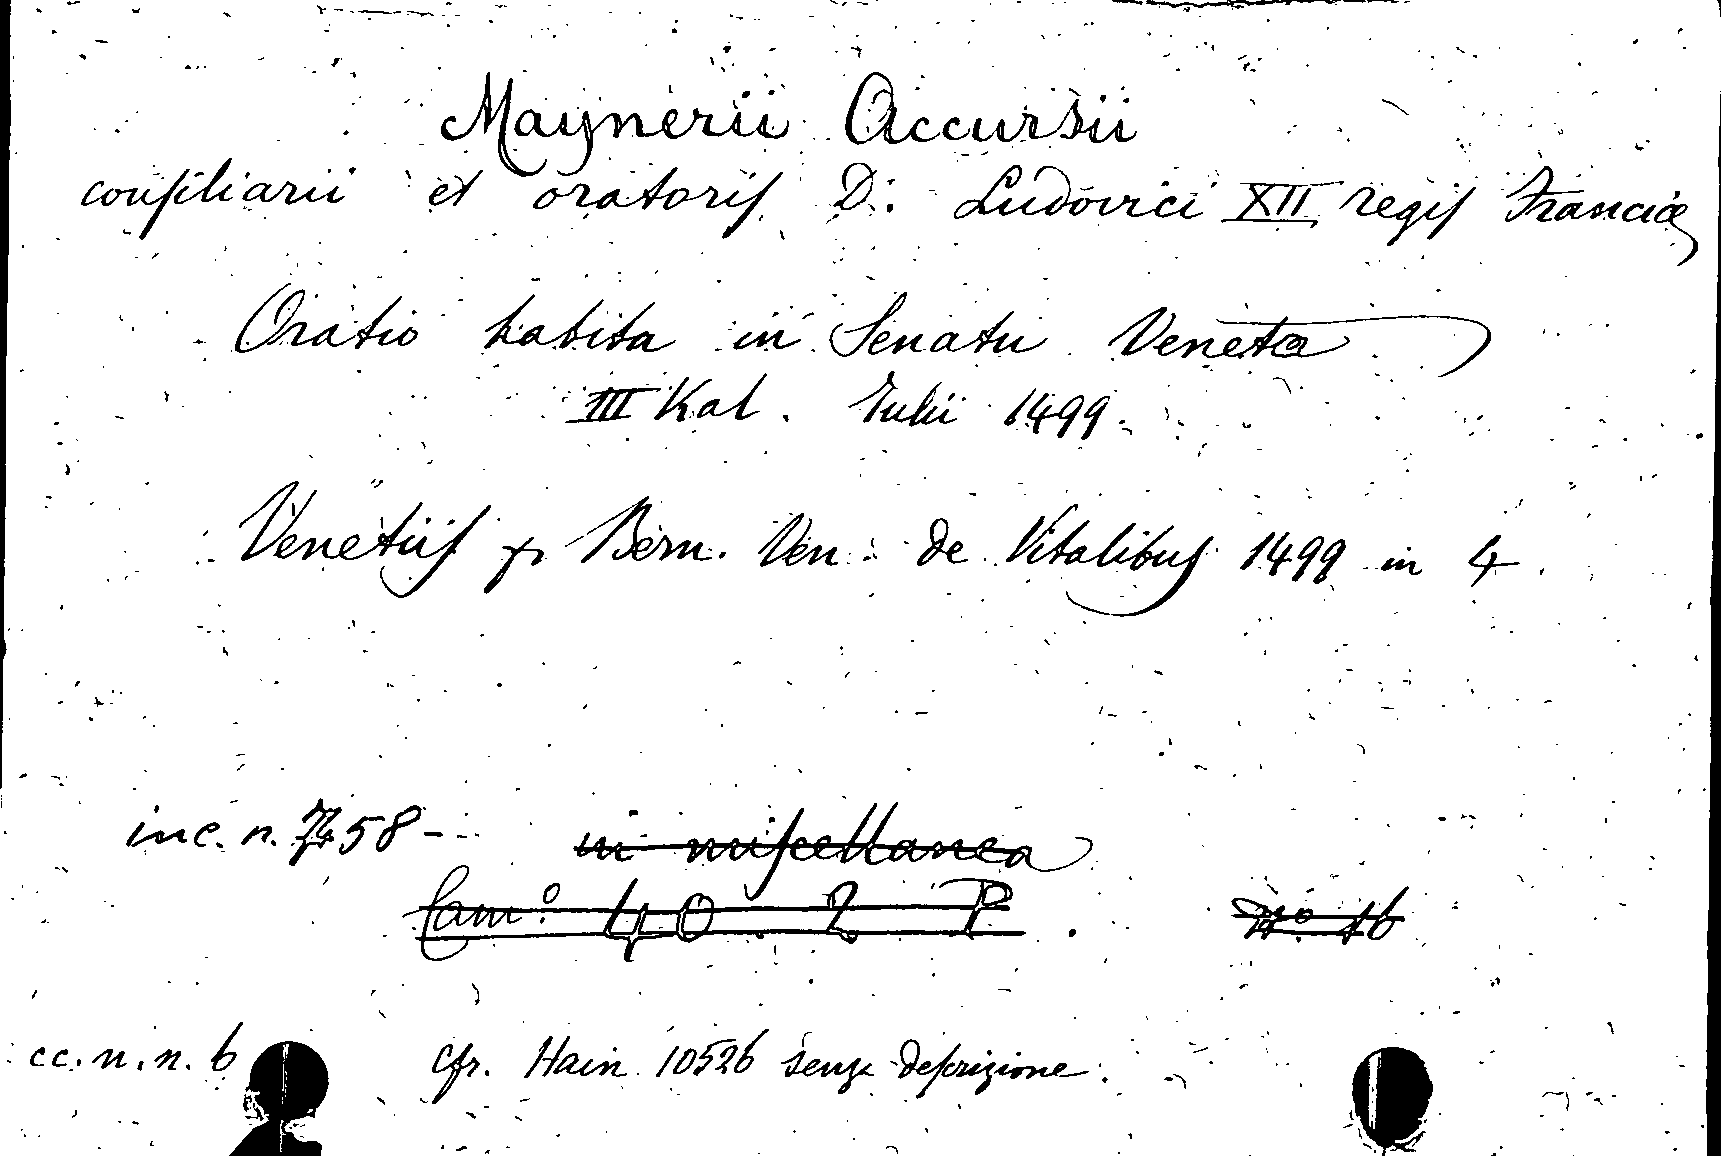 Maynerii Accursii
conſiliarii et oratoriſ D. Ludovici XII regiſ Franciæ
Oratio habita in Senatu Veneto
III Kal. Iulii 1499.
Venetiiſ p. Bern. Ven. de Vitalibuſ 1499 in 4
inc. n. 7458 -
in miſcellanea
Cam.º 40 2 P. Nº 16
cc. n. n. 6 cfr. Hain 10526 senza deſcrizione.